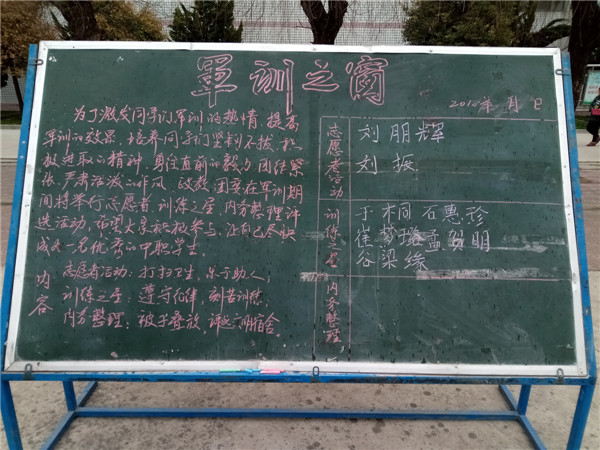 军训之窗
为了激发同学们军训的热情,提高
军训的效果,培养同学们坚韧不拔,积
极进取的精神,勇往直前的毅力,团结紧
张,严肃活泼的作风,政教团委在军训期
间特举行志愿者,训练之星,内务整理评
选活动,希望大家积极参与,让自己尽快
成为一名优秀的中职学生。
内容
志愿者活动:打扫卫生,乐于助人;
训练之星:遵守纪律,刻苦训练;
内务整理:被子叠放,评选文明宿舍。
年 月 日
志愿者活动
刘朋辉
刘振
训练之星
于桐 石惠珍
崔梦璐 孟贺明
谷梁缘
内务整理